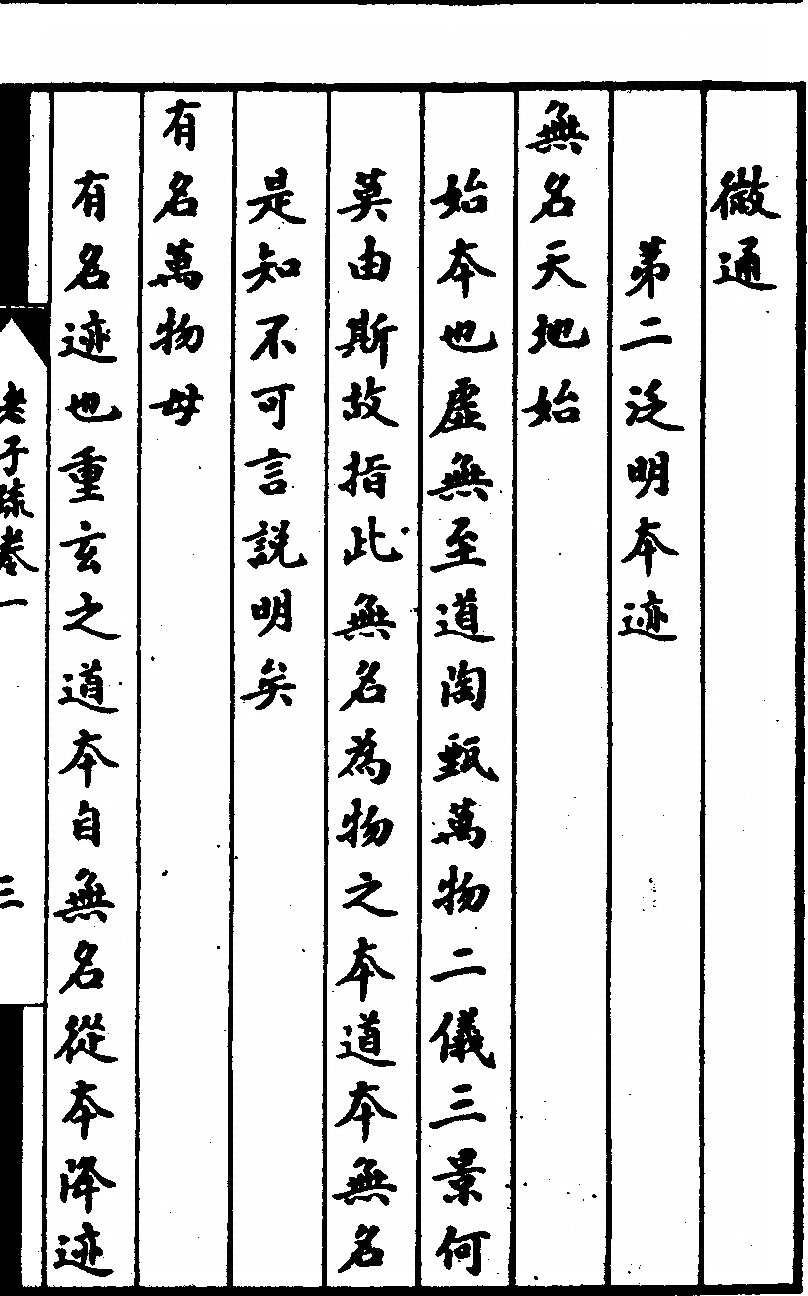 微通
第二泛明本迹
無名天地始
始本也虛無至道陶甄萬物二儀三景何
莫由斯故指此無名為物之本道本無名
是知不可言說明矣
有名萬物母
有名迹也重玄之道本自無名從本降迹
老子疏卷一
三